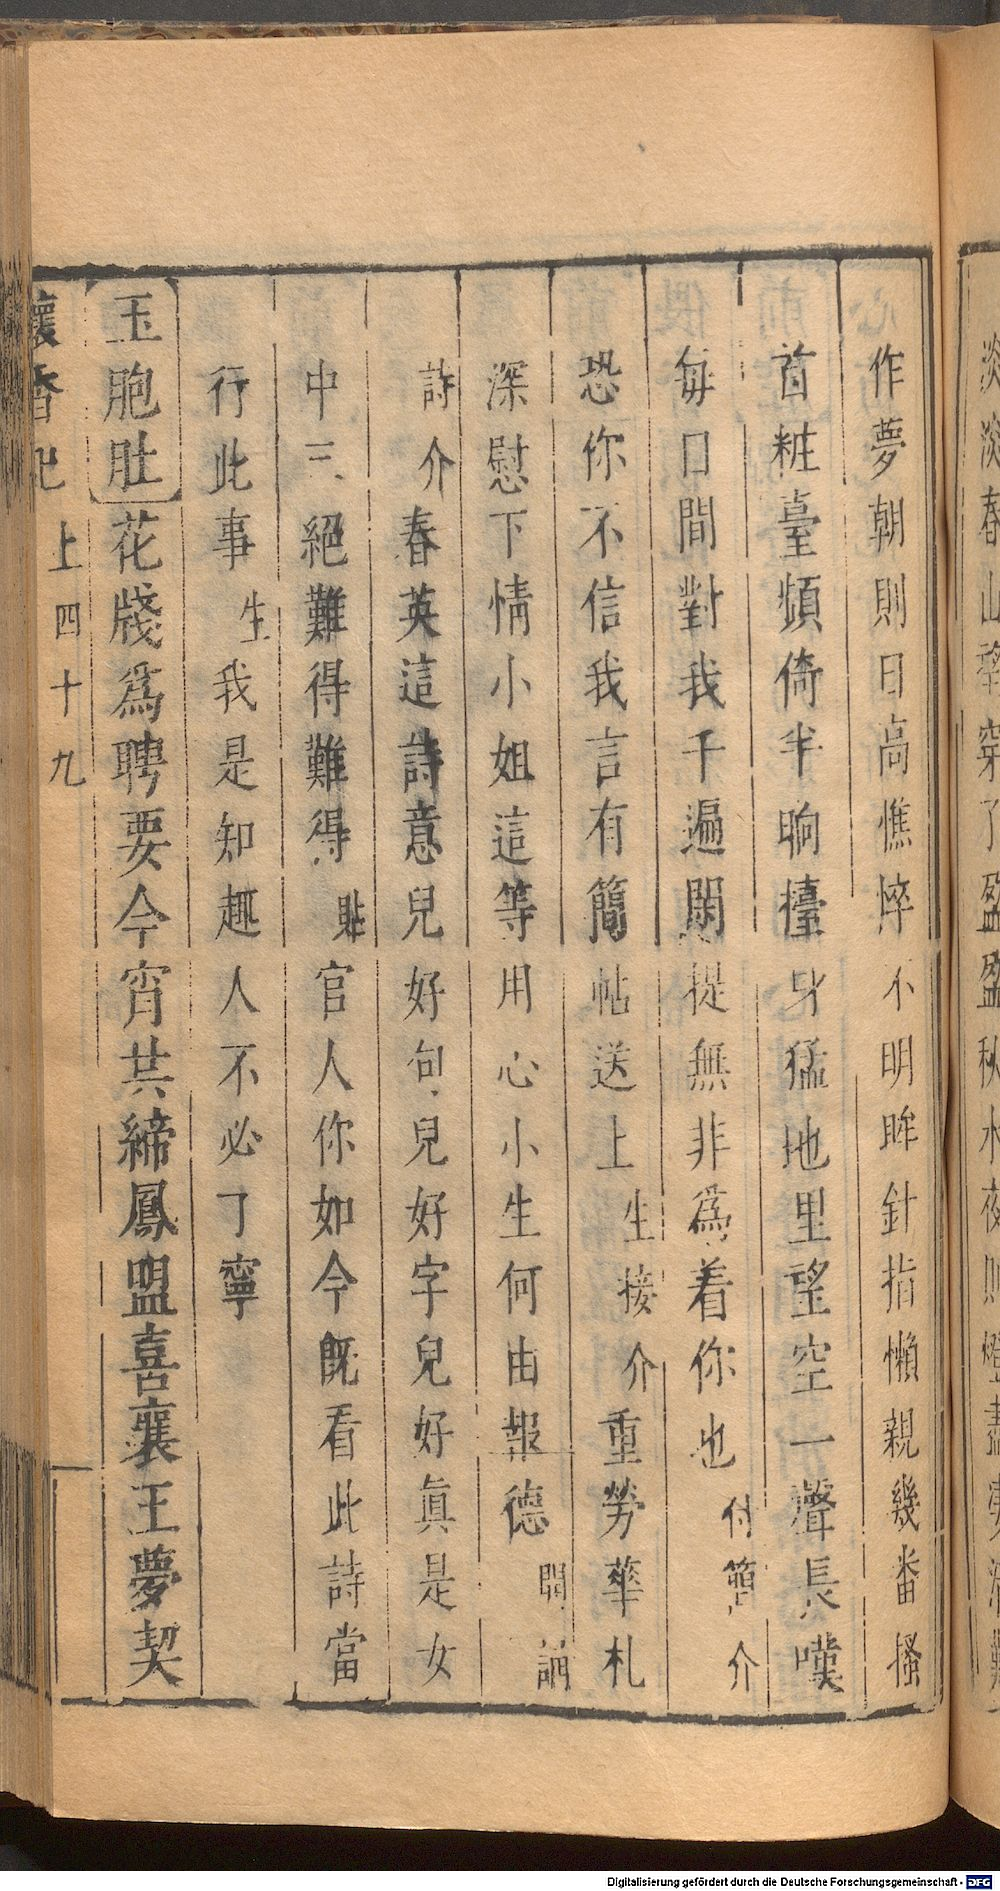 淡淡春山穿了盈盈秋水夜則燈盡
作夢朝則日高憔悴不明眸針指懶親幾番搔
首粧臺頻倚半晌擡身猛地里望空一聲長嘆
每口間對我千遍閑提無非爲着你也付簡介
恐你不信我言有簡帖送上生接介重勞華札
深慰下情小姐這等用心小生何由報德開誦
詩介春英這詩意兒好句兒好字兒好眞是女
中三絕難得難得貼官人你如今旣看此詩當
行此事生我是知趣人不必丁寧
玉胞肚花牋爲聘要今宵共締鳳盟喜襄王夢契
懷香記 上四十九
Digitalisierung gefördert durch die Deutsche Forschungsgemeinschaft - DFG